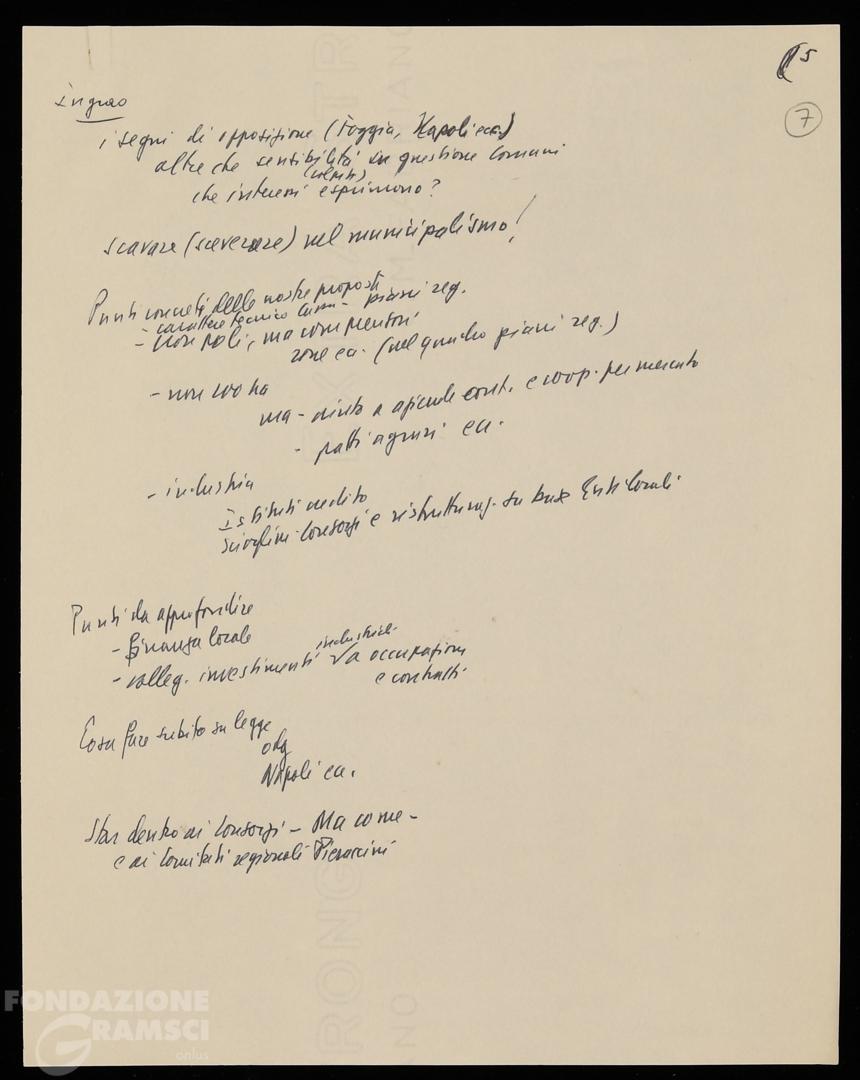 5
7
Ingrao
i segni di opposizione (Foggia, Napoli ecc.)
altre che sensibilità su questione comuni
che interessi esprimono?
scavare (sceverare) nel municipalismo!
Punti concreti delle nostre proposte
- carattere tecnico Cassa - piani reg.
- non poli, ma comprensori
zone ec. (nel quadro piani reg.)
- non
ma - aiuto a aziende cont. e coop. per mercato
- patti agrari ec.
- industria
Istituti credito
sciogliere Consorzi e ristrutturaz. su base Enti locali
Punti da approfondire
- finanza locale
- colleg. investimenti industriali a occupazione
e contratti
Cosa fare subito su legge
odg
Napoli ec.
Star dentro ai Consorzi - Ma come -
e ai Comitati regionali Pieraccini
FONDAZIONE
GRAMSCI
onlus